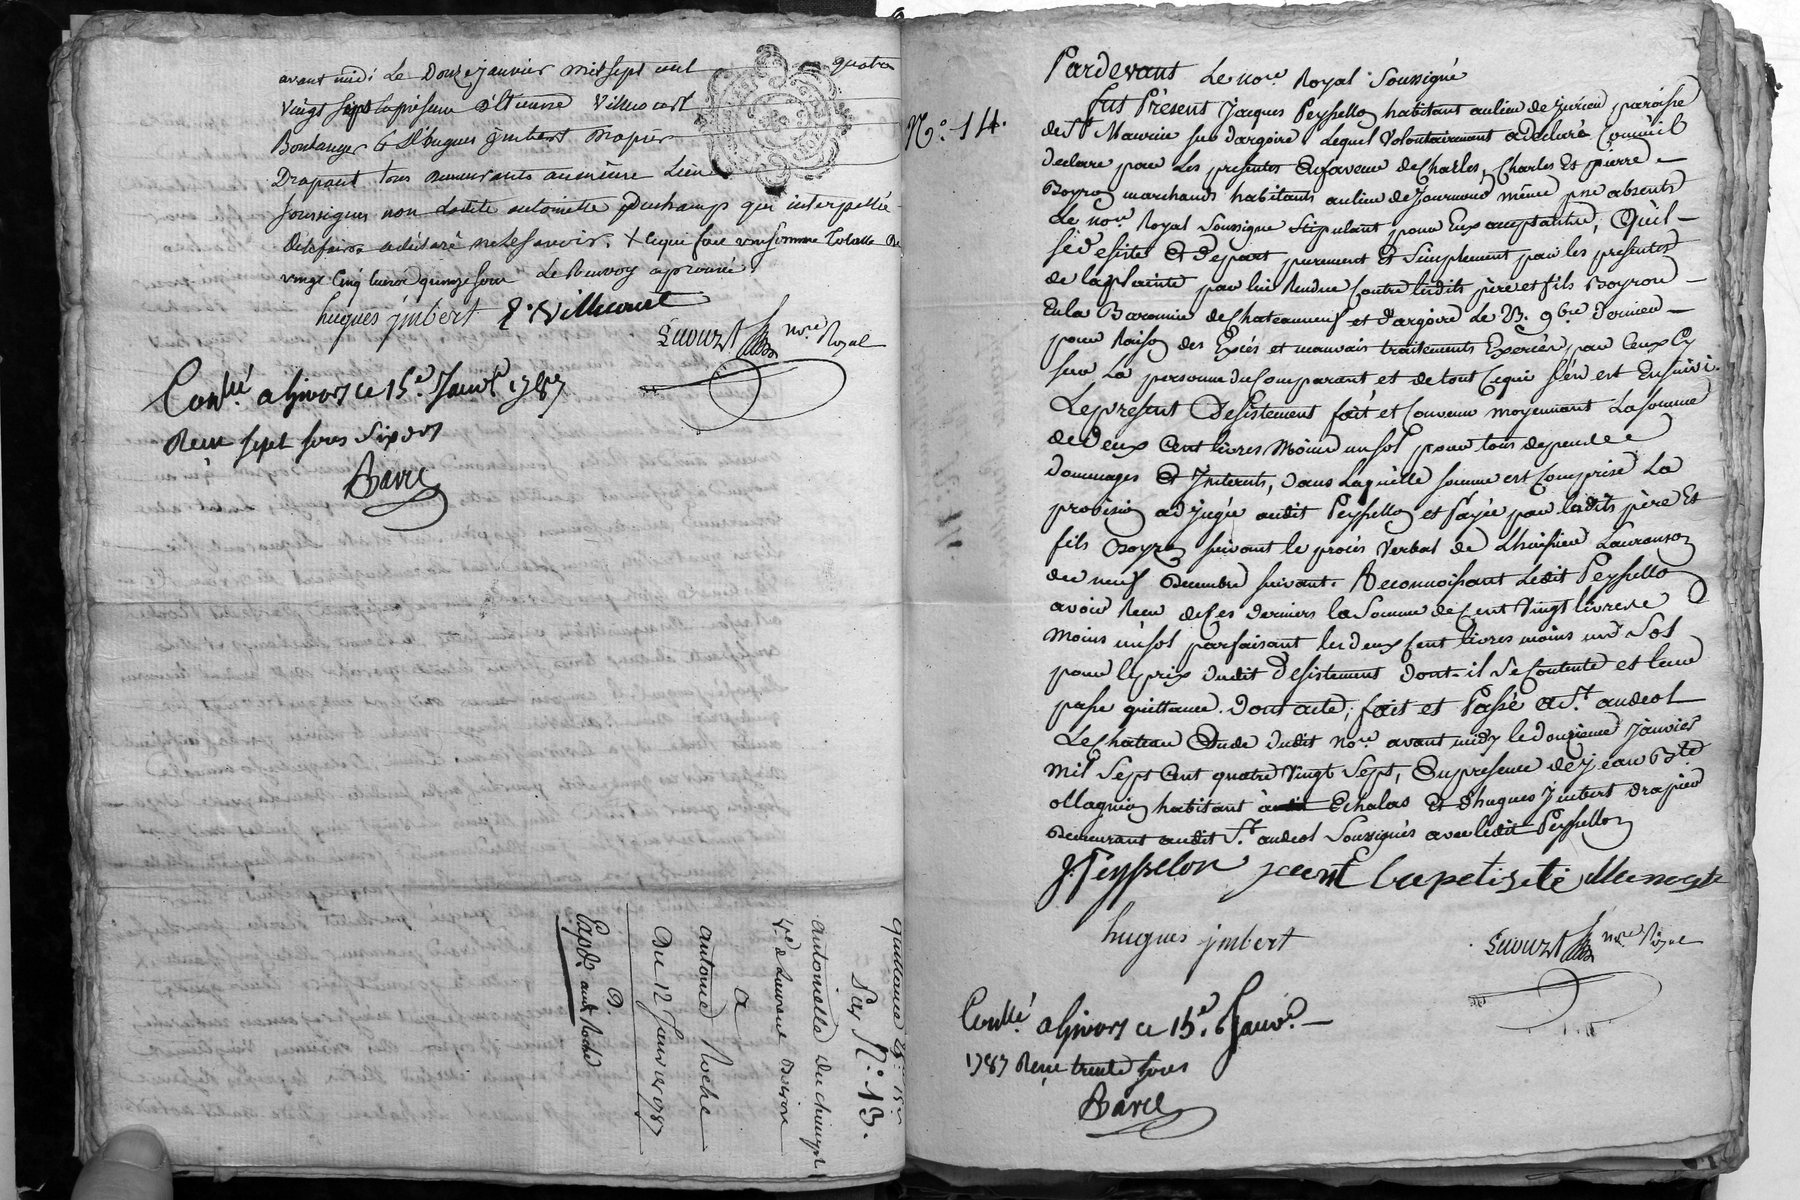 avant midi Le Douze janvier mil sept cent quatre
vingt sept En présence d'Etienne Villecourt
Boulanger & d'hugues jmbert Drapier
Drapant tous demeurants au même Lieu
soussignes non Ladite antoinette Duchamp qui interpellée
de le faire a déclaré ne le savoir. + Ce qui fait une somme totalle de
vingt Cinq livres quinze sous Le Renvoy aprouvé
hugues jmbert E. Villecourt
nore Royal
Conllé a Givors ce 15e Janvr 1787
Reçu sept sous six drs
Barre
quittance 25: 15s
Par N.° 13.
antoinette Duchampt
Ve de Laurant Boiron
a
antoine Roche
Du 12 Janvier 1787
D.
Expdé audt Roche
N.° 14.
Pardevant Le nore Royal Soussigné
fut Présent Jacques Peysselon habitant au lieu de jurieu, paroisse
de St Maurice sur dargoire, Lequel Volontairement a déclaré Comme il
declare par Les presentes En faveur de Charles, Charles Et pierre
Boyron marchands habitants au lieu de Journoud même psse absents
Le nore Royal Soussigné Stipulant pour Eux acceptants, Qu'il
se désiste et départ purement et Simplement par les présentes
de la plainte par lui Rendue Contre lesdits père et fils Boyron
En la Baronnie de Chateauneuf et d'argoire Le 23. 9bre dernier
pour Raison des Excés et mauvais traitements Exercés par Ceux Cy
sur La personne du Comparant et de tout Ce qui s'en est Ensuivi.
Le présent Désistement fait et Convenu moyennant La somme
de Deux Cent livres Moins un sol pour tous depends
dommages Et Interets, dans Laquelle somme est Comprise La
provision adjugée audit Peysselon et Payée par lesdits père Et
fils Boyron suivant le procés Verbal de L'huissier Lauranson
du neuf decembre suivant. Reconnoissant Ledit Peysselon
avoir Reçu de Ces derniers la Somme de Cent Vingt livres
Moins un sol parfaisant les deux Cent livres moins un Sol
pour le prix dudit Désistement dont il se Contente et leur
passe quittance. Dont acte, fait et Passé a St andeol
Le Chateau Etude dudit nore avant midy le douzieme Janvier
Mil Sept Cent quatre Vingt Sept, En présence de jean Bte
ollagnier habitant Echalas Et d'hugues Jmbert drapier
Demeurant audit St andeol Soussignés avec ledit Peysselon
J. Peysselon jeant bapetiste
hugues jmbert
nore Royal
Conllé a Givors ce 15e Janvr
1787 Reçu trente sous
Barre